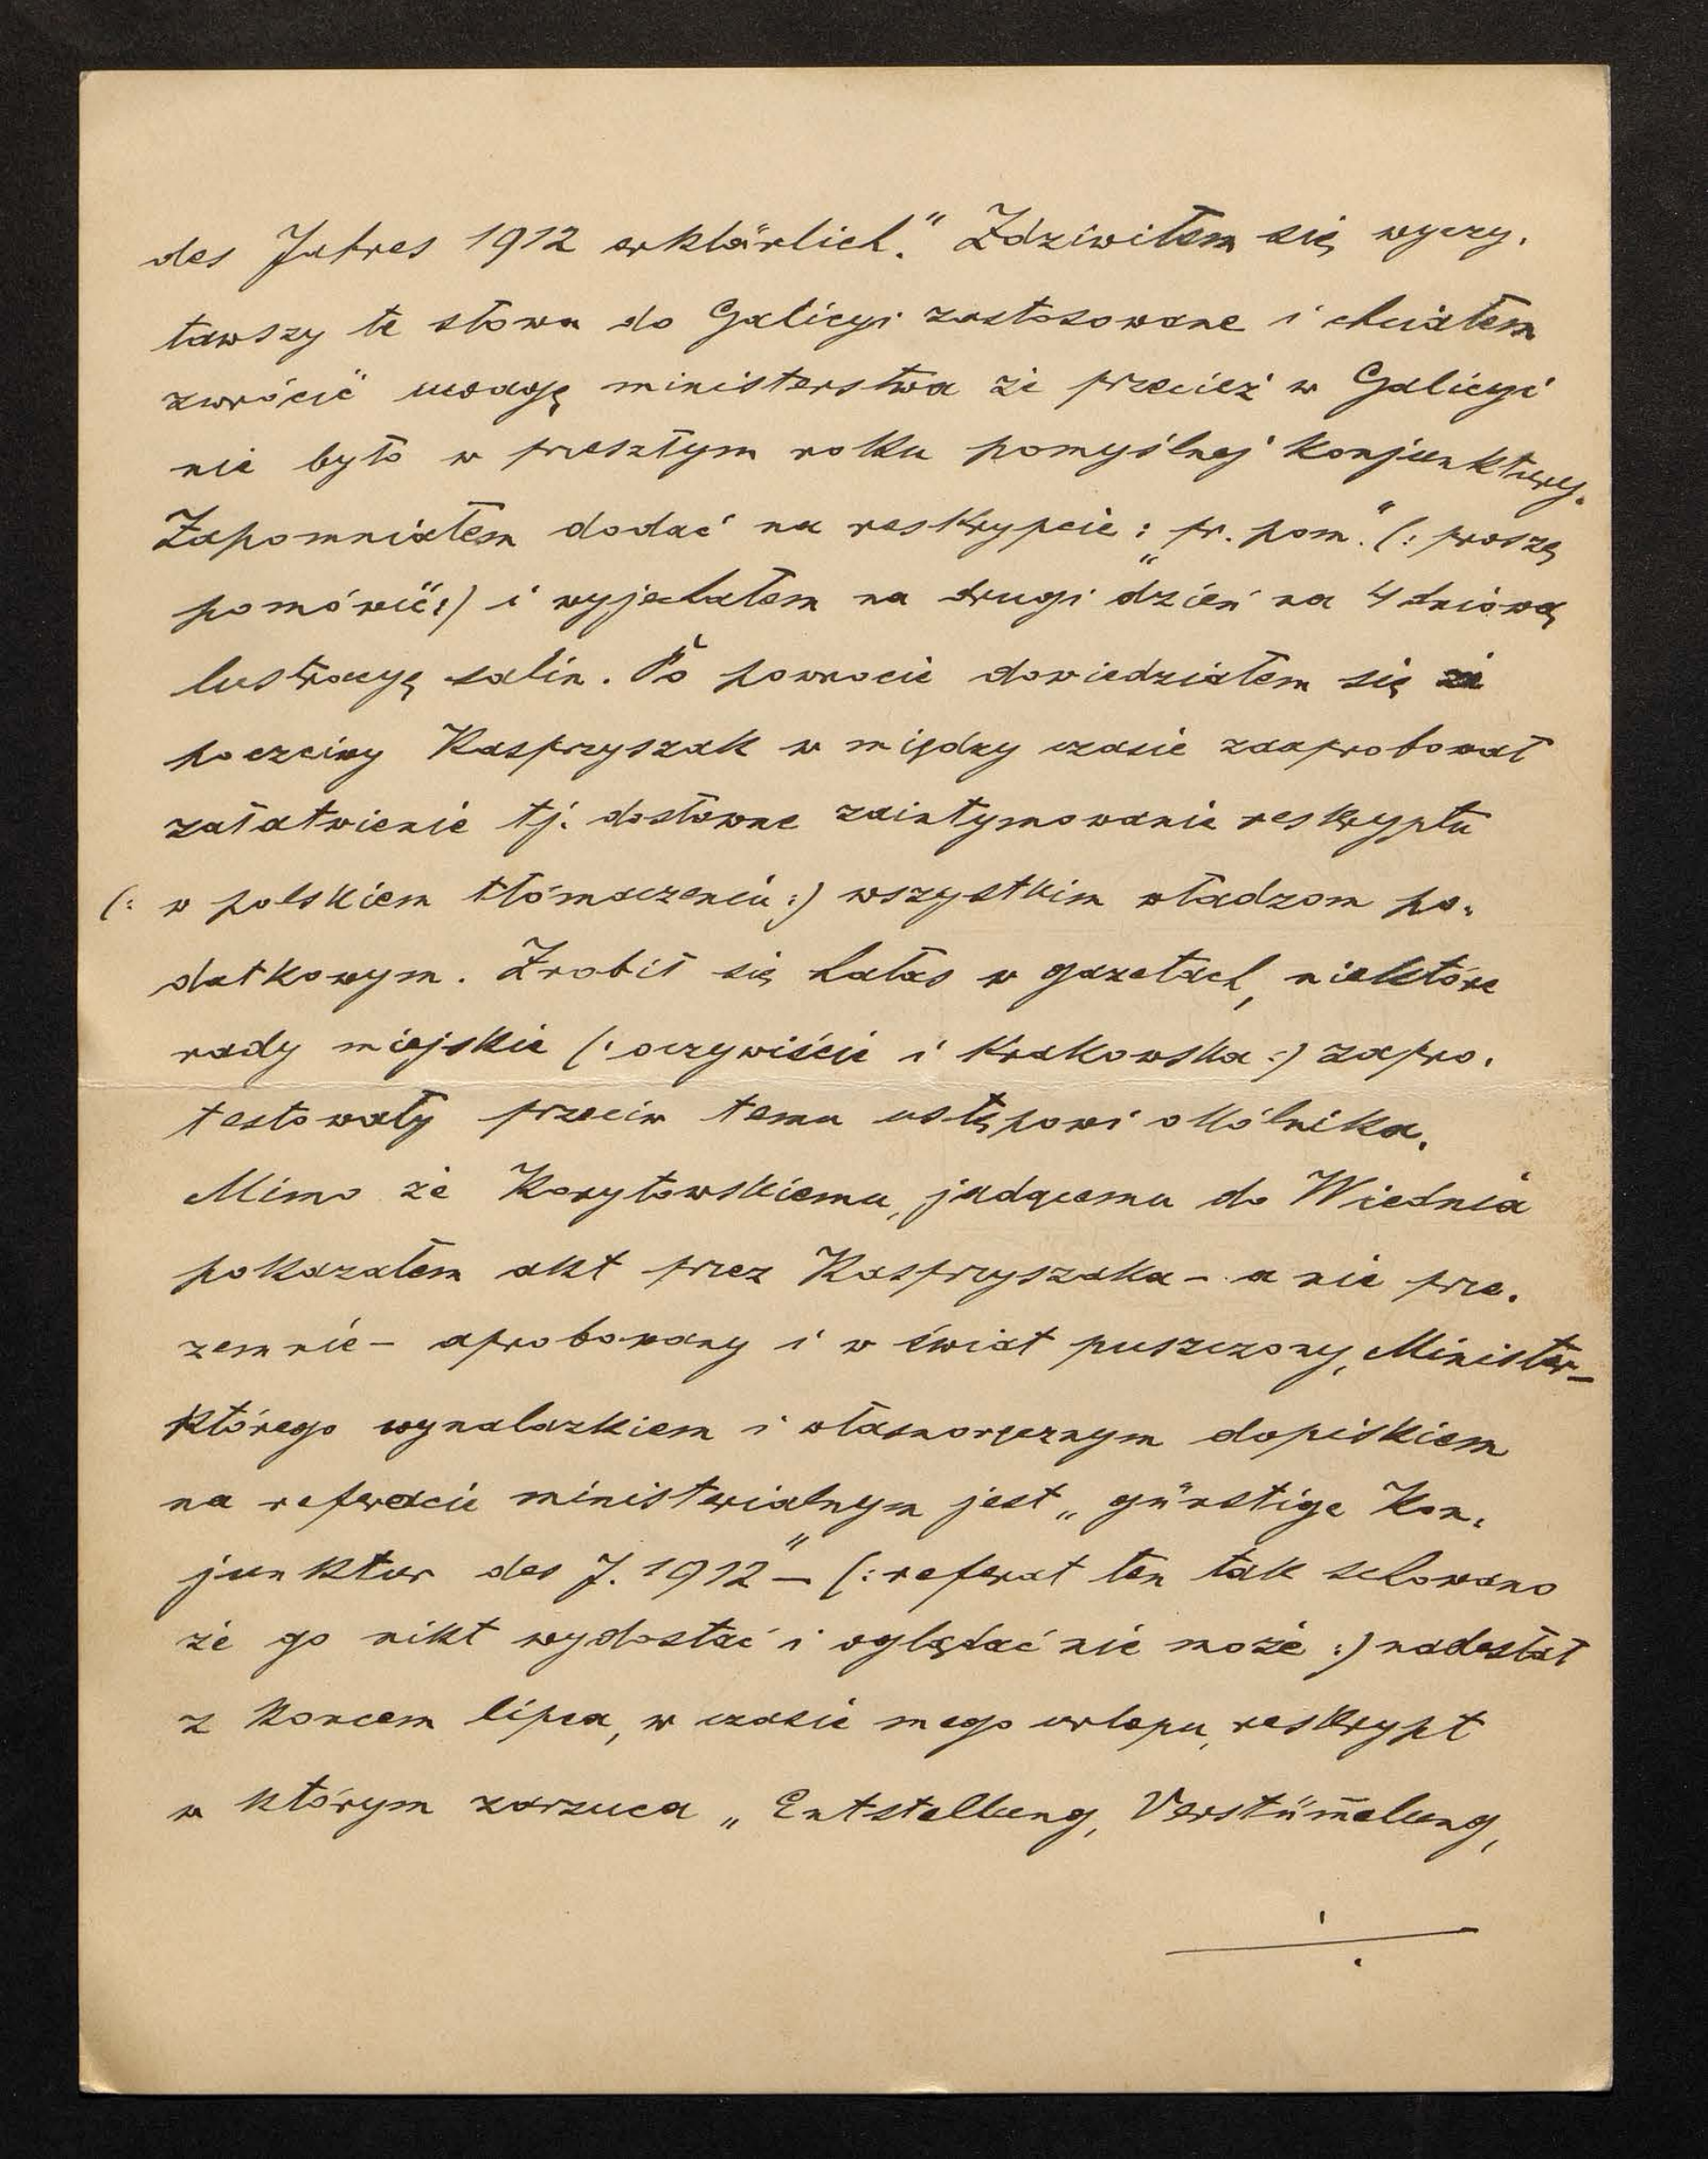 des Jahres 1912 erklärlich." Zdziwiłem się wyczy-
tawszy te słowa do Galicyi zastosowane i chciałem
zwrócić uwagę ministerstwa że przecież w Galicyi
nie było w przeszłym roku pomyślnej konjunktury.
Zapomniałem dodać na reskrypcie: „pr. pom." (: proszę
pomówić :) i wyjechałem na drugi dzień na 4 dniową
lustracyę salin. Po powrocie dowiedziałem się że
poczciwy Kasprzyszak w między czasie zaaprobował
załatwienie tj. dosłowne zaintymowanie reskryptu
(: w polskiem tłómaczeniu :) wszystkim władzom po-
datkowym. Zrobił się hałas w gazetach, niektóre
rady miejskie (: oczywiście i krakowska :) zapro-
testowały przeciw temu ustępowi okólnika.
Mimo że Korytowskiemu, jadącemu do Wiednia
pokazałem akt przez Kasprzyszaka - a nie prze-
zemnie - aprobowany i w świat puszczony, Minister -
którego wynalazkiem i własnoręcznym dopiskiem
na referacie ministerialnym jest „günstige Kon-
junktur des J. 1912" - (: referat ten tak schowano
że go nikt wydostać i oglądać nie może :) nadesłał
z końcem lipca, w czasie mego urlopu, reskrypt
w którym zarzuca „Entstellung, Verstüm̅elung,
./.